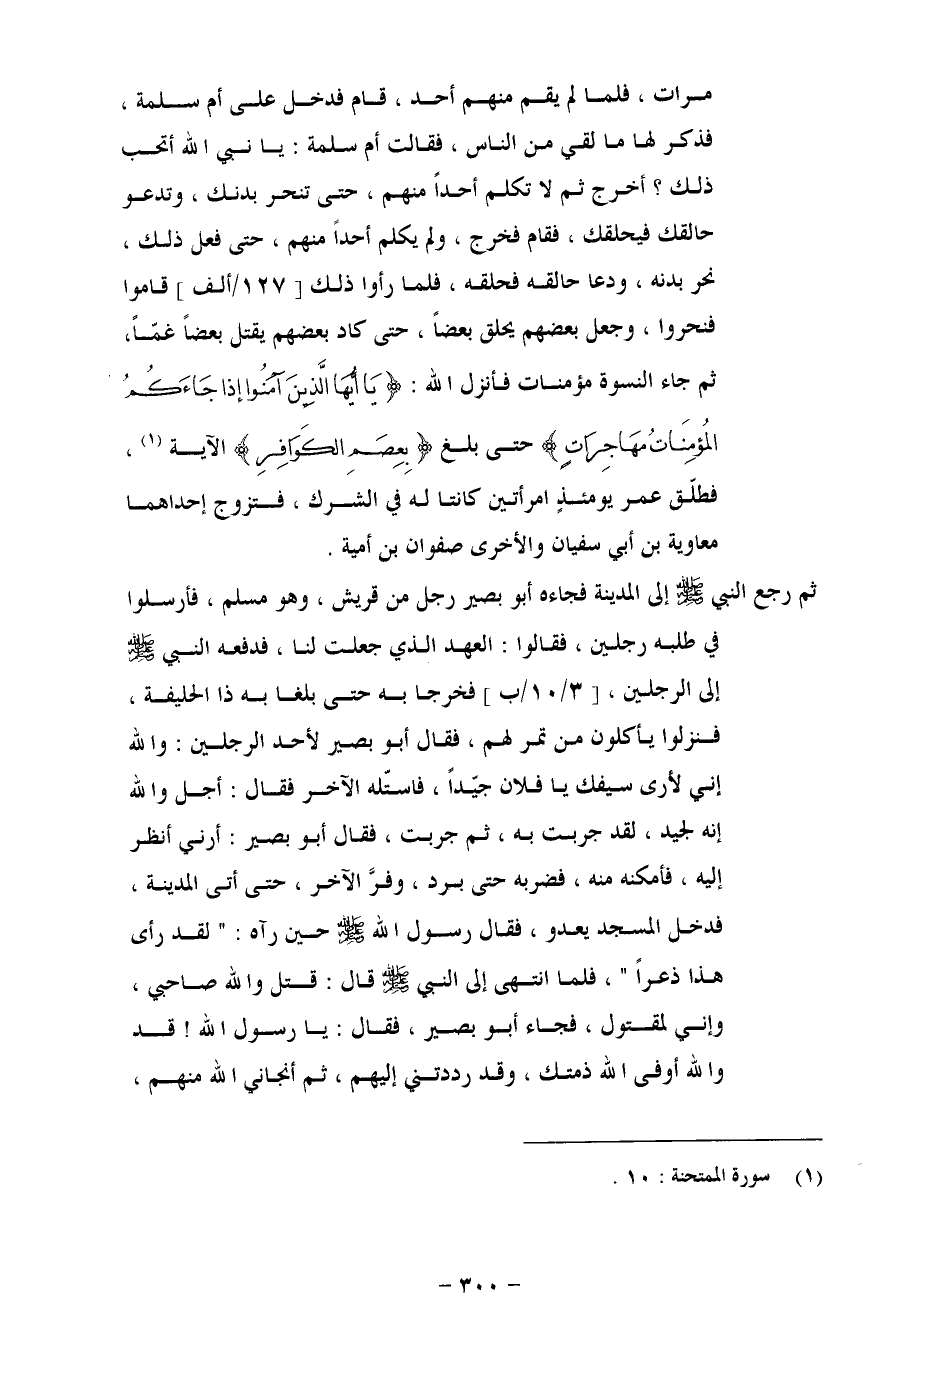 مرات ، فلما لم يقم منهم أحد ، قام فدخل على أم سلمة ،
فذكر لها ما لقي من الناس ، فقالت أم سلمة : يا نبي الله أتحب
ذلك ؟ أخرج ثم لا تكلم أحداً منهم ، حتى تنحر بدنك ، وتدعو
حالقك فيحلقك ، فقام فخرج ، ولم يكلم أحداً منهم ، حتى فعل ذلك ،
نحر بدنه ، ودعا حالقه فحلقه ، فلما رأوا ذلك [ ١٢٧/ألف ] قاموا
فنحروا ، وجعل بعضهم يحلق بعضاً ، حتى كاد بعضهم يقتل بعضاً غمّاً،
ثم جاء النسوة مؤمنات فأنزل الله : ﴿ يَا أَيُّهَا الَّذِينَ آمَنُوا إذا جَاءَكُمُ
المُؤمِنَاتُ مُهَاجِرَاتٍ ﴾ حتى بلغ ﴿ بِعِصَمِ الكَوَافِرِ ﴾ الآية (١) ،
فطلّق عمر يومئذٍ امرأتين كانتا له في الشرك ، فتزوج إحداهما
معاوية بن أبي سفيان والأخرى صفوان بن أمية .
ثم رجع النبي ﷺ إلى المدينة فجاءه أبو بصير رجل من قريش ، وهو مسلم ، فأرسلوا
في طلبه رجلين ، فقالوا : العهد الذي جعلت لنا ، فدفعه النبي ﷺ
إلى الرجلين ، [ ١٠/٣/ب ] فخرجا به حتى بلغا به ذا الحليفة ،
فنزلوا يأكلون من تمر لهم ، فقال أبو بصير لأحد الرجلين : والله
إني لأرى سيفك يا فلان جيّداً ، فاستّله الآخر فقال : أجل والله
إنه لجيد ، لقد جربت به ، ثم جربت ، فقال أبو بصير : أرني أنظر
إليه ، فأمكنه منه ، فضربه حتى برد ، وفرَّ الآخر ، حتى أتى المدينة ،
فدخل المسجد يعدو ، فقال رسول الله ﷺ حين رآه : " لقد رأى
هذا ذعراً " ، فلما انتهى إلى النبي ﷺ قال : قتل والله صاحبي ،
وإني لمقتول ، فجاء أبو بصير ، فقال : يا رسول الله ! قد
والله أوفى الله ذمتك ، وقد رددتني إليهم ، ثم أنجاني الله منهم ،
(١) سورة الممتحنة : ١٠ .
- ٣٠٠ -